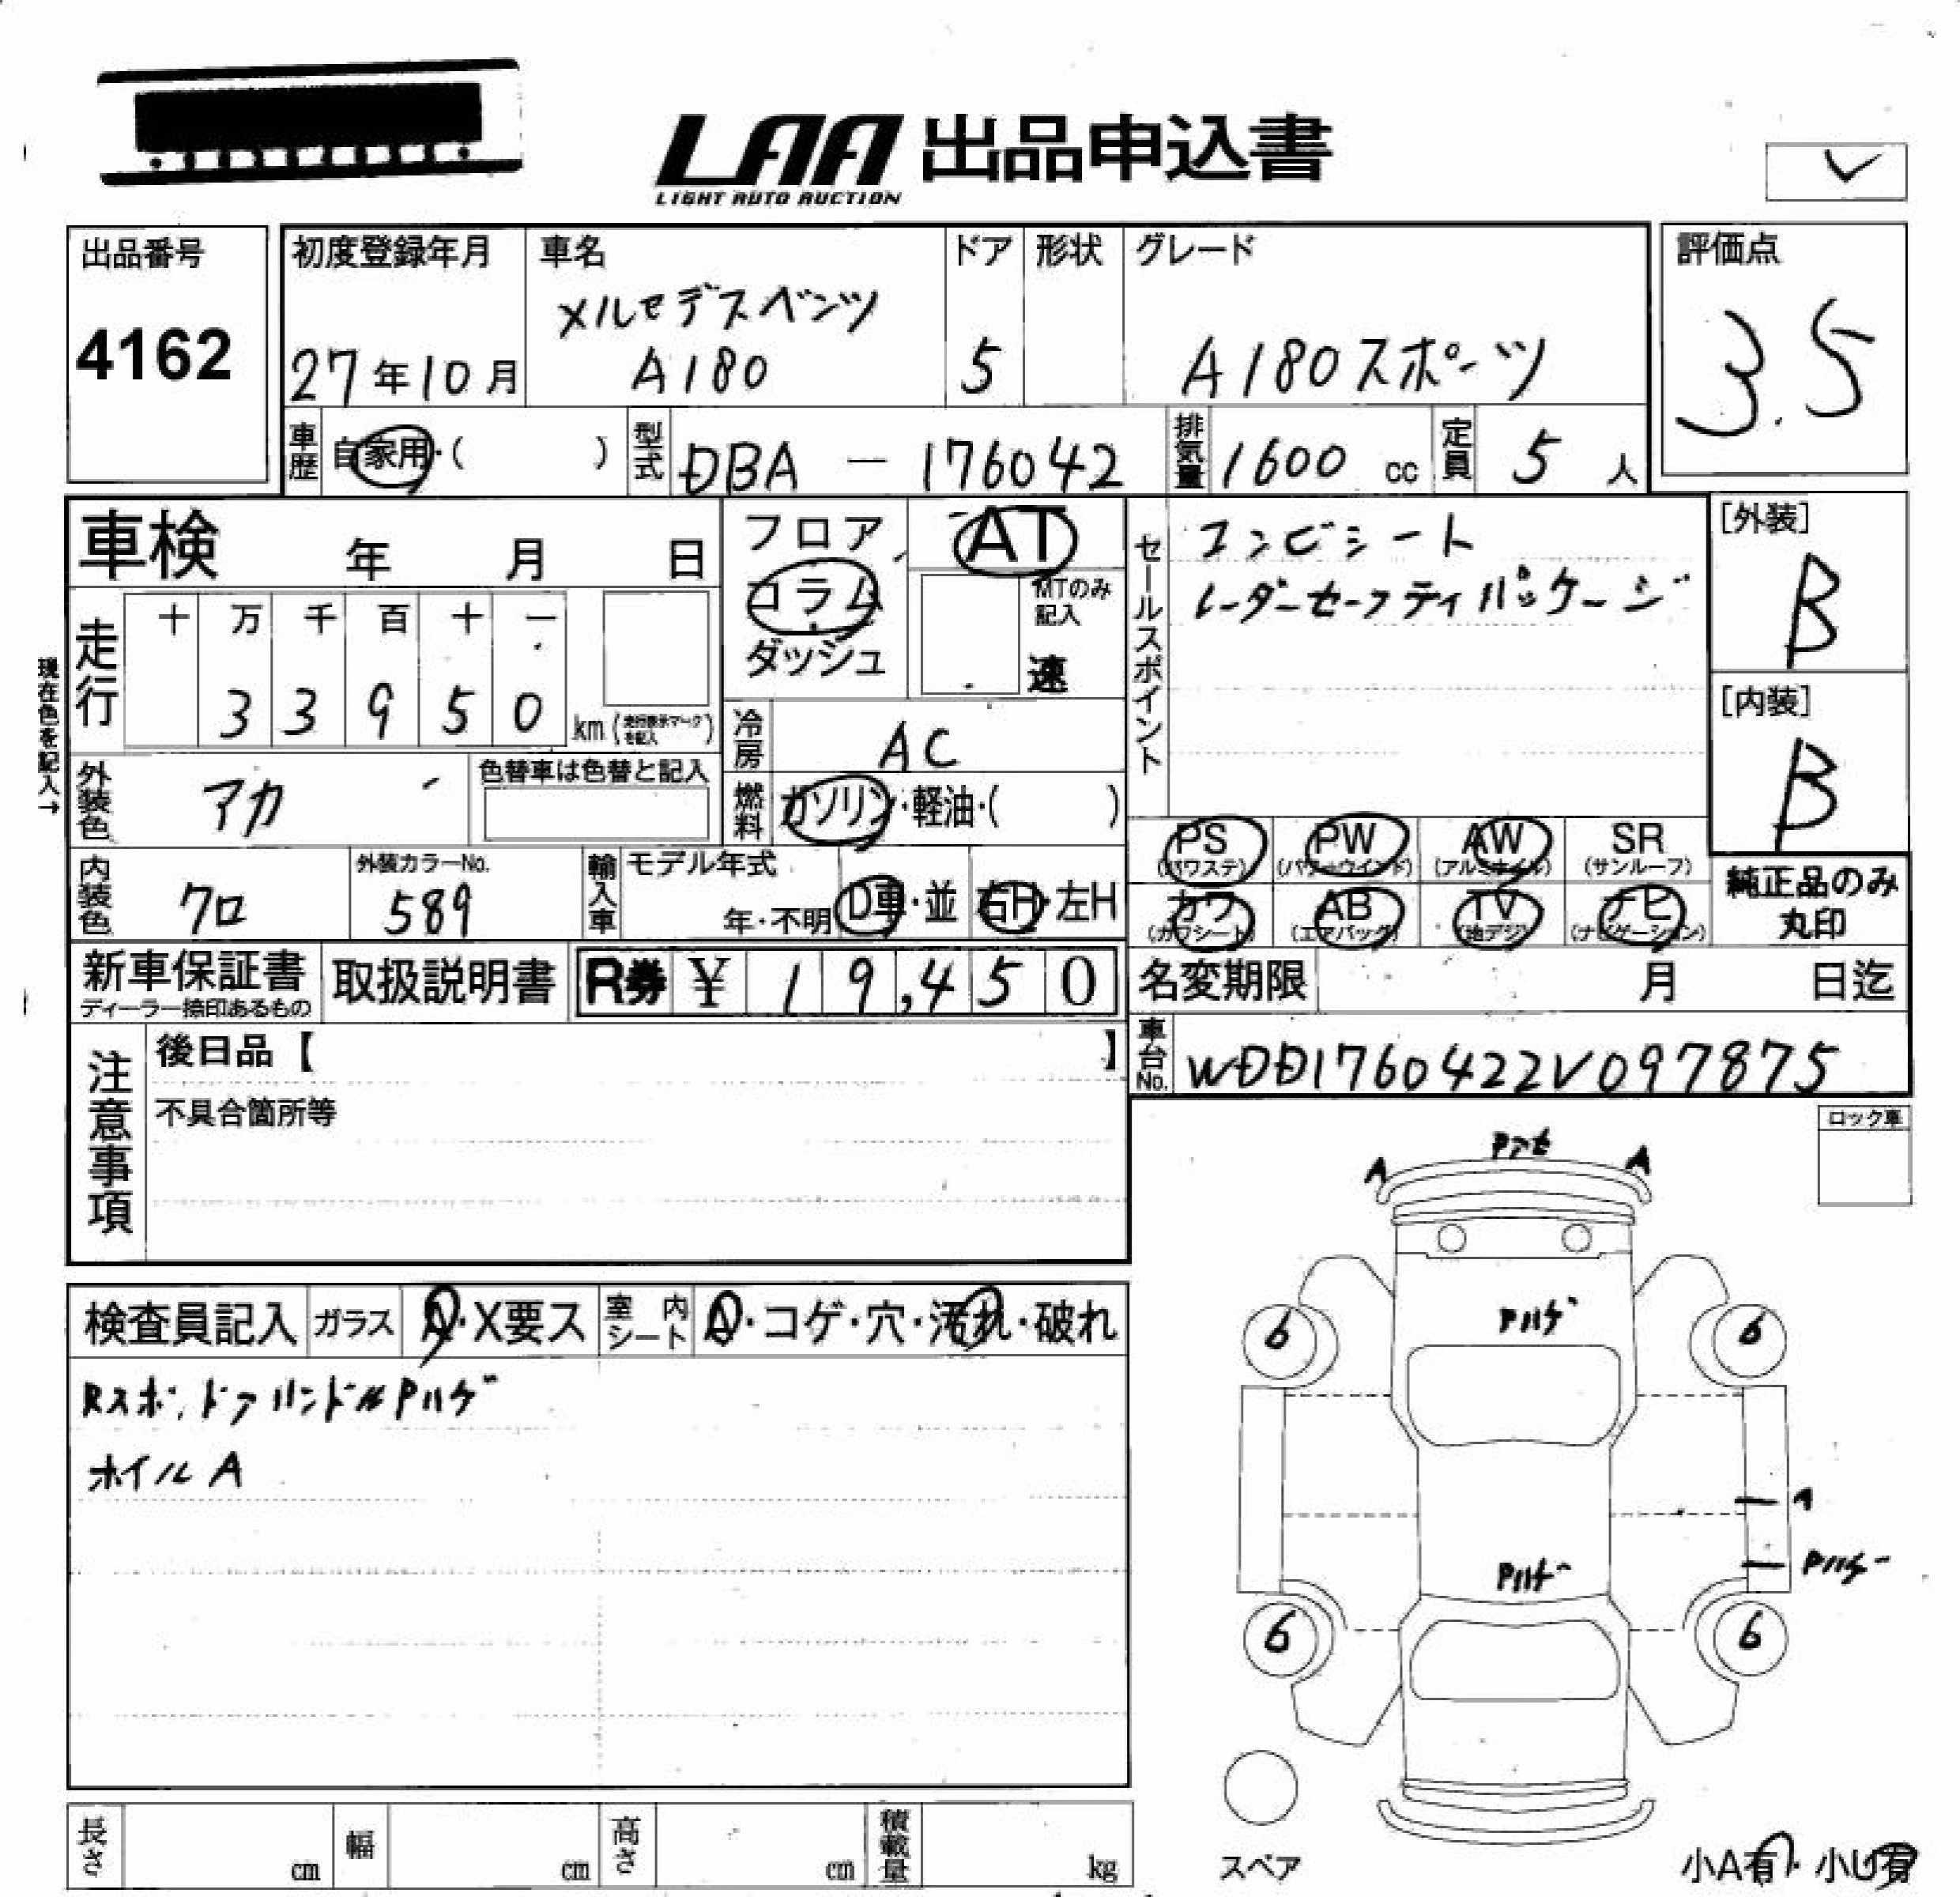 LAA 出品申込書
LIGHT AUTO AUCTION
出品番号
4162
初度登録年月
27年10月
車名
メルセデスベンツ
A180
ドア
5
形状
グレード
A180スポーツ
評価点
3.5
車歴 自家用・( )
型式 DBA - 176042
排気量 1600 cc
定員 5 人
車検 年 月 日
フロア
コラム
ダッシュ
AT
MTのみ
記入
速
セールスポイント
コンビシート
レーダーセーフティパッケージ
[外装]
B
[内装]
B
現在色を記入→
走行
十 万 千 百 十 一
3 3 9 5 0
km (走行表示マークを記入)
冷房 AC
燃料 ガソリン・軽油・( )
外装色 アカ
色替車は色替と記入
内装色 クロ
外装カラーNo.
589
輸入車
モデル年式
年・不明
D車・並
右H・左H
PS
(パワステ)
PW
(パワーウインド)
AW
(アルミホイル)
SR
(サンルーフ)
カワ
(カワシート)
AB
(エアバッグ)
TV
(地デジ)
ナビ
(ナビゲーション)
純正品のみ
丸印
新車保証書
ディーラー捺印あるもの
取扱説明書
R券 ¥ 19,450
名変期限 月 日迄
車台No. WDD1760422V097875
注意事項
後日品【 】
不具合箇所等
ロック車
検査員記入
ガラス A・X要ス
室内シート A・コゲ・穴・汚れ・破れ
Rスポ,ドアハンドルPハゲ
ホイルA
A
A
Pハゲ
6
6
Pハゲ
Pハゲ
6
6
スペア
小A有・小U有
長さ cm
幅 cm
高さ cm
積載量 kg